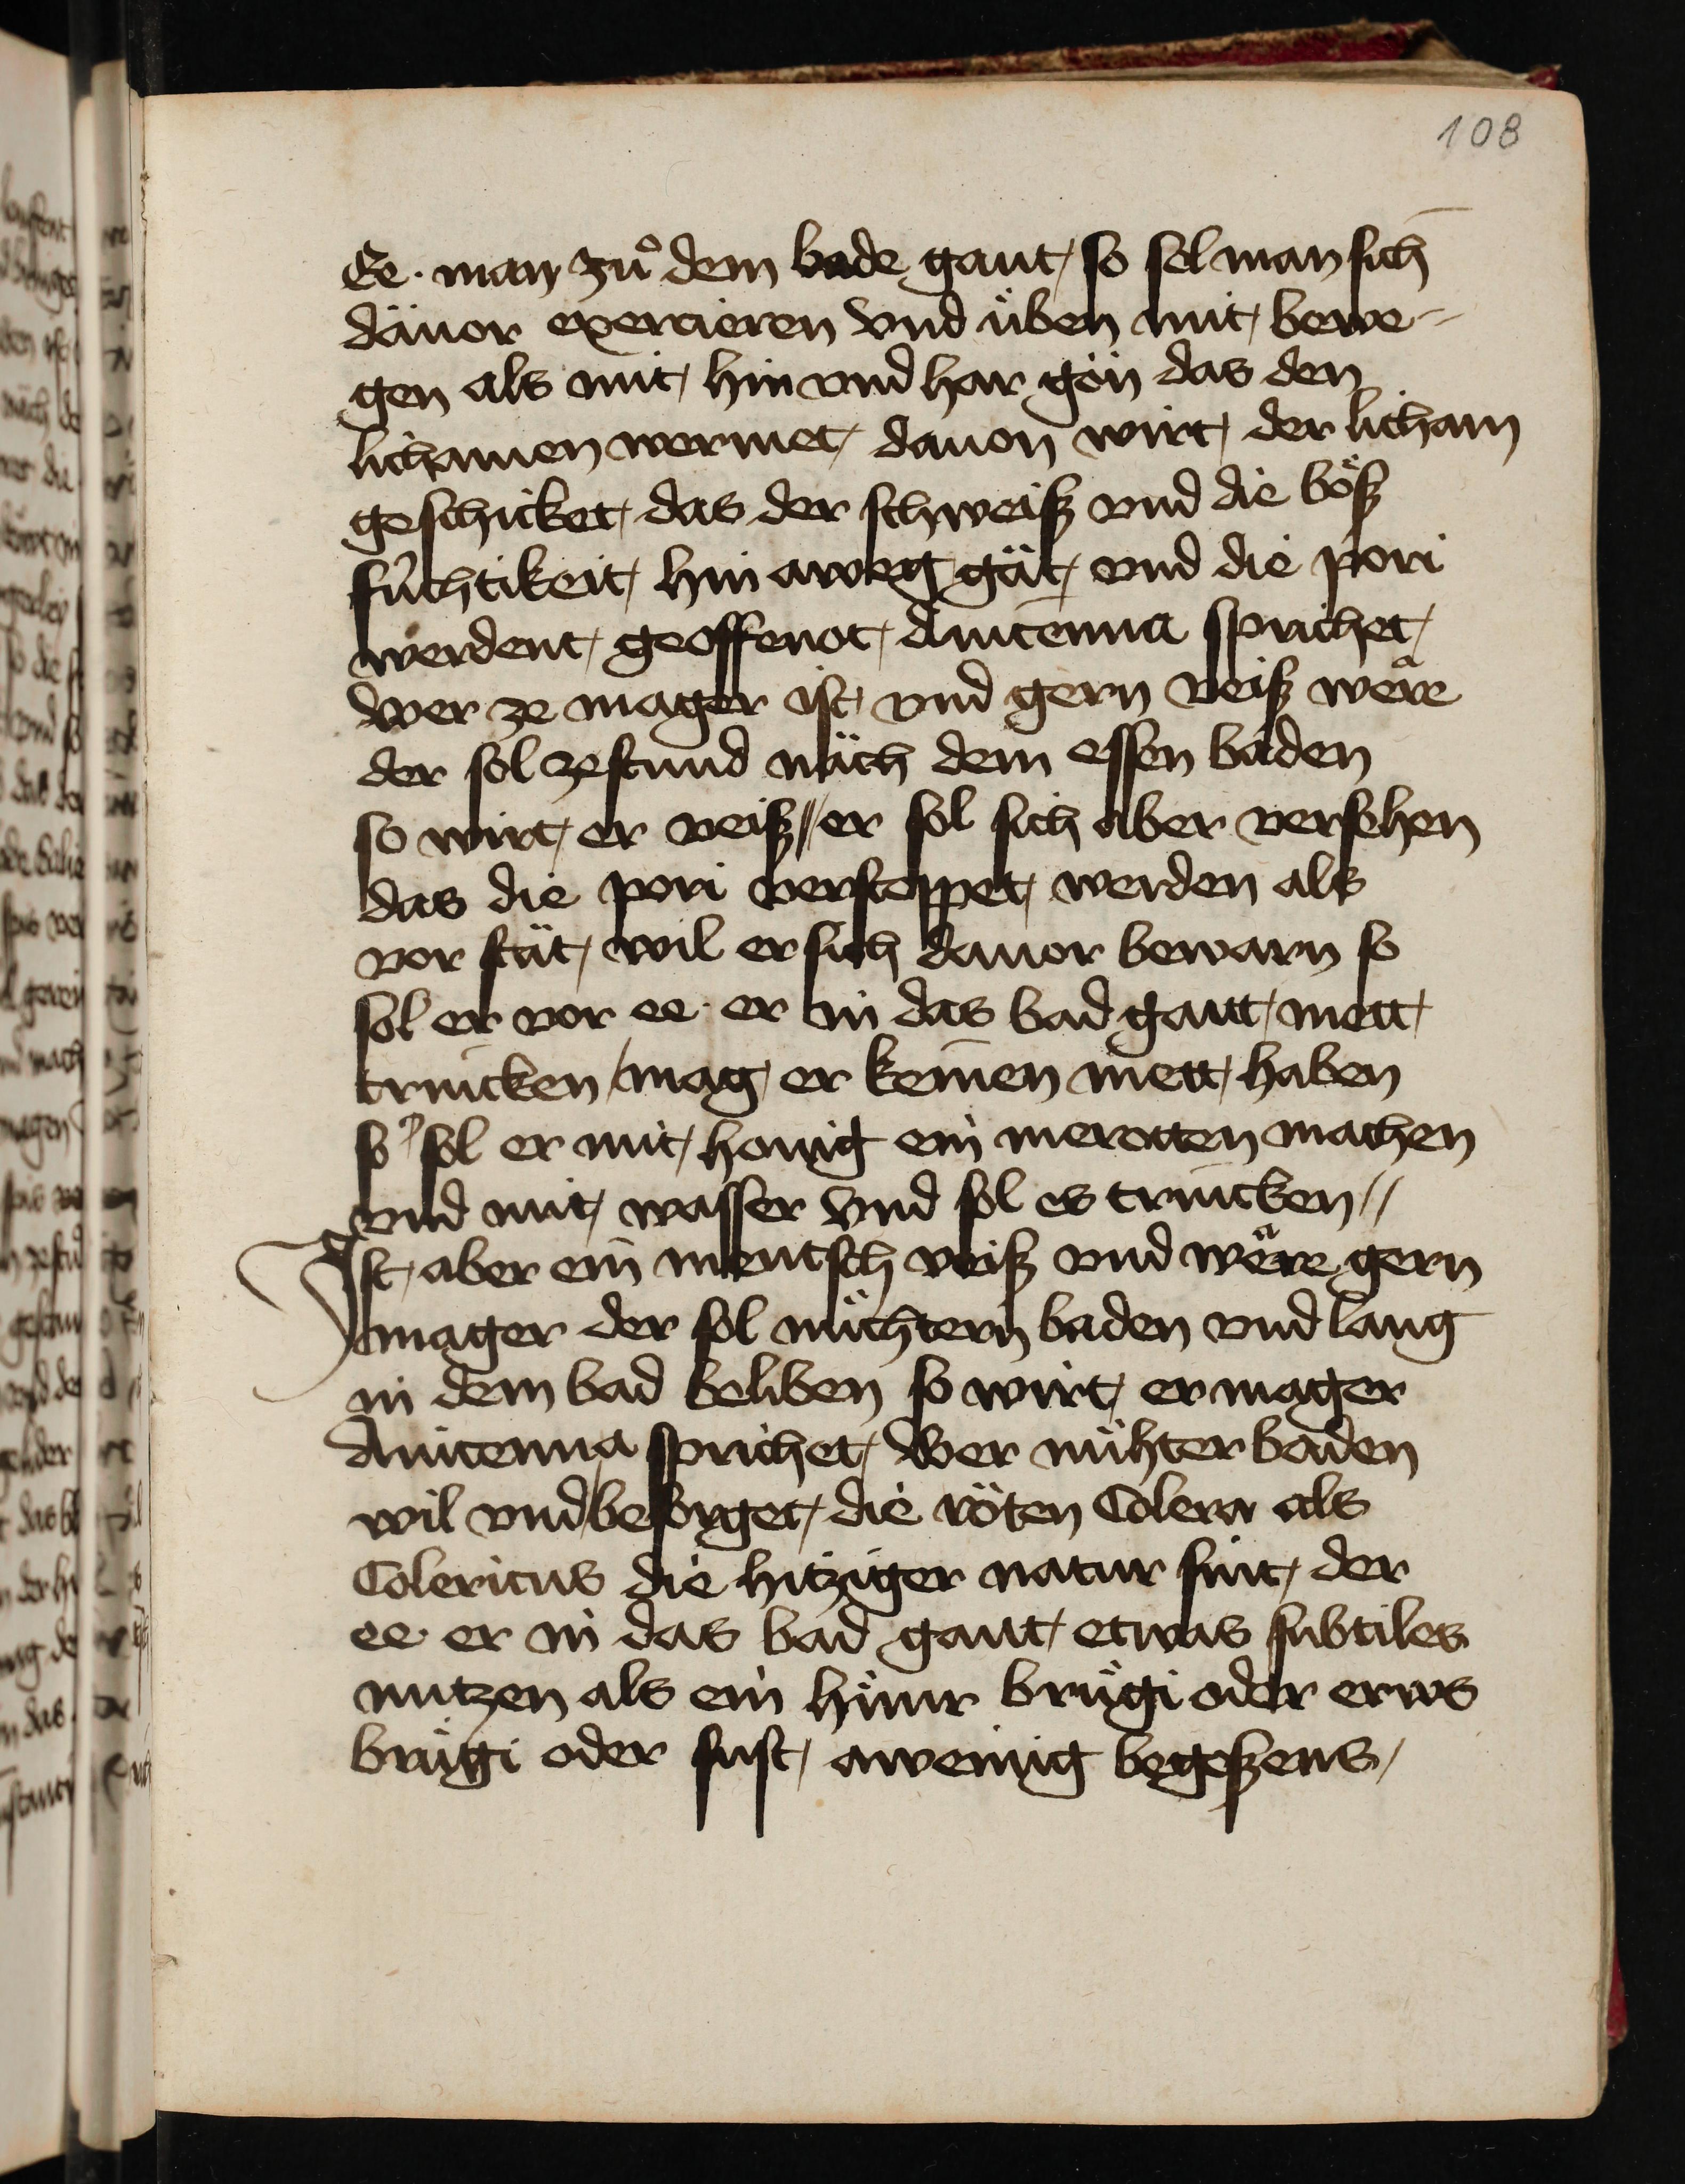 108
Ee. man zuͦ dem bade gant / so sol man sich
dävor exercieren vnd üben mit bewe-
gen als mit hin vnd har gön das den
lichamen wermet / davon wirt der licham
geschicket das der schweisz vnd die bösz
füchtikeit hin aweg gät / vnd die pori
werdent geoffenot / Auicenna sprichet /
wer ze mager ist vnd gern veisz wëre
der sol zestund näch dem essen baden
so wirt er veisz // er sol sich aber versehen
das die pori verstoppet werden als
vor stät / wil er sich davor bewarn so
sol er vor ee. er in das bad gautt mett
trincken / mag er keinen mett haben
so sol er mit honig ein merotten machen
vnd mit wasser vnd sol es trincken //
Ist aber ein mentsch veisz vnd wëre gern
mager der sol nüchtern baden vnd lang
in dem bad beliben so wirt er mager
Auicenna sprichet / Wer nühter baden
wil vnd besorget die röten Colera als
Colericus die hitziger natur sint / der
ee er in das bad gant etwas subtiles
nutzen als ein hünr brügi oder erws
brügi oder sust awenig begeszens /